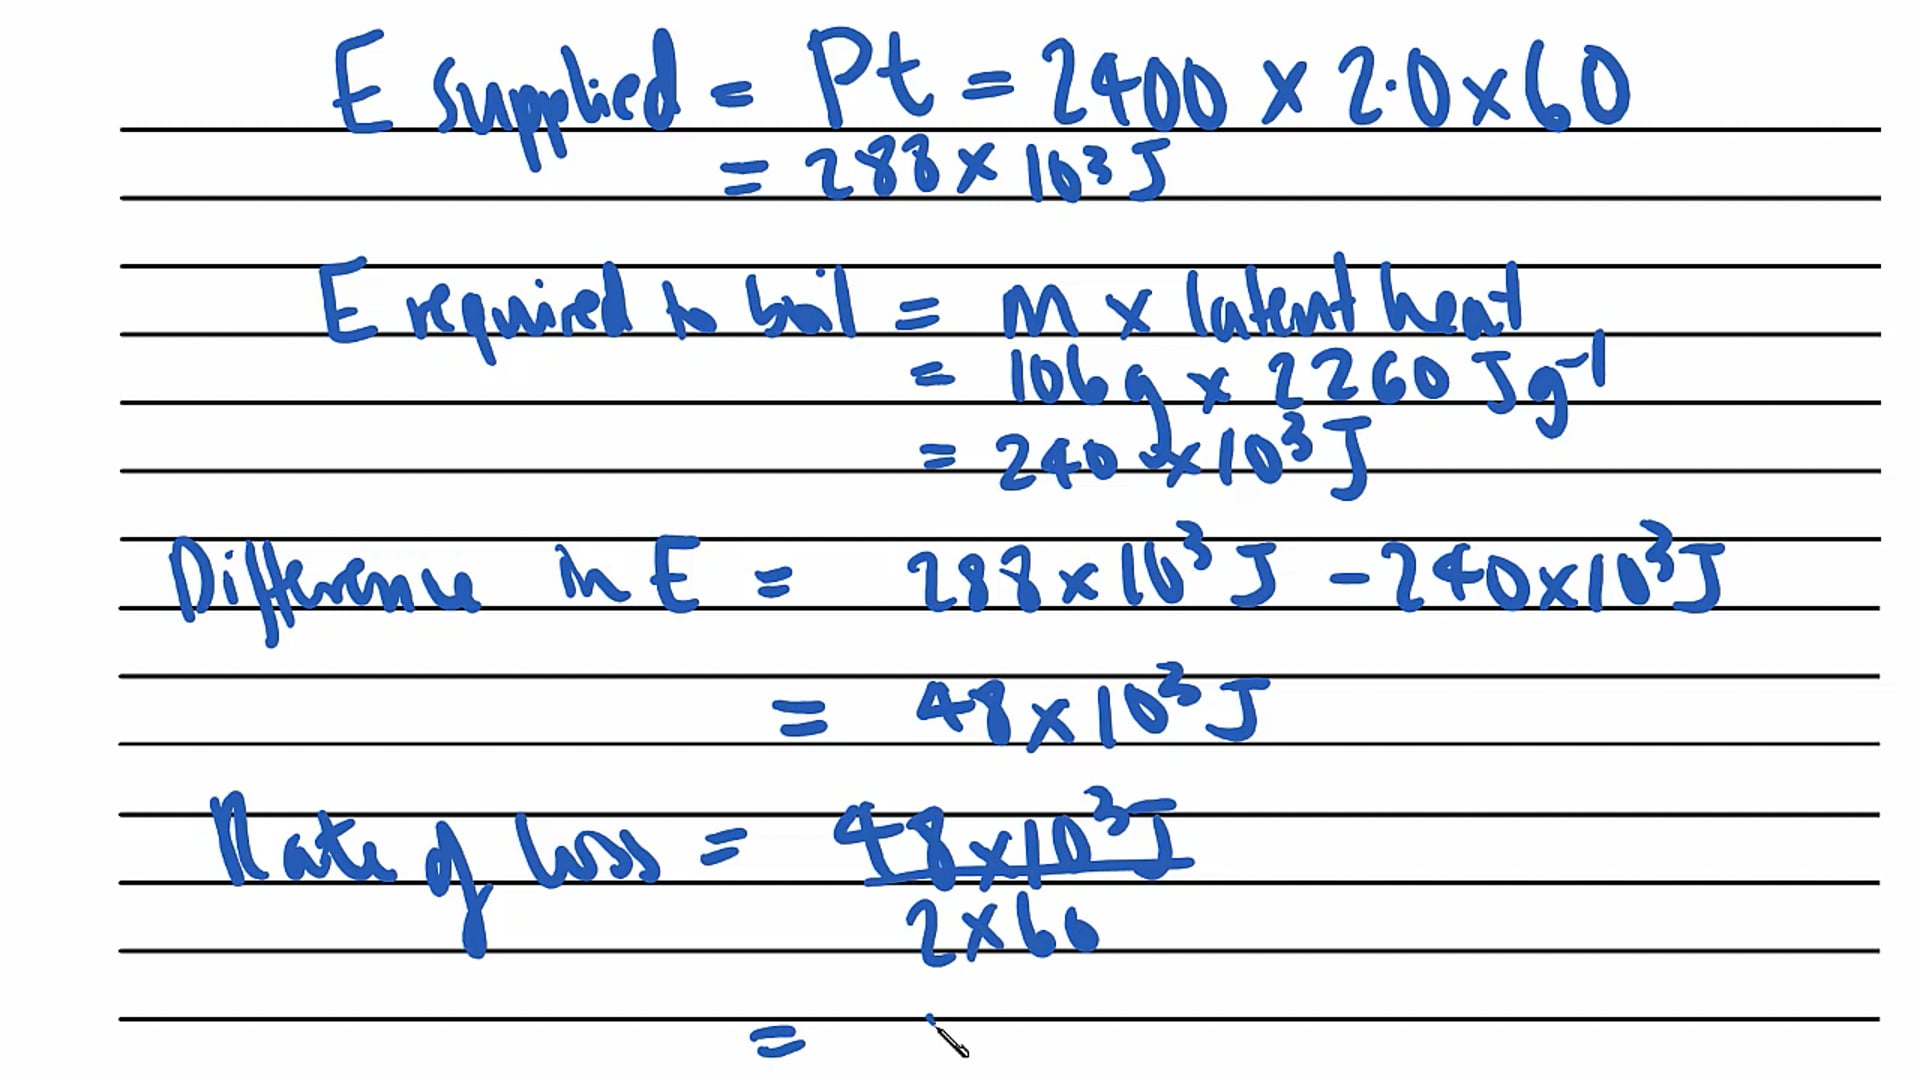 E supplied = Pt = 2400 × 2.0 × 60
= 288 × 10³ J
E required to boil = m × latent heat
= 106 g × 2260 J g⁻¹
= 240 × 10³ J
Difference in E = 288 × 10³ J − 240 × 10³ J
= 48 × 10³ J
Rate of loss = 48 × 10³ J
2 × 60
=